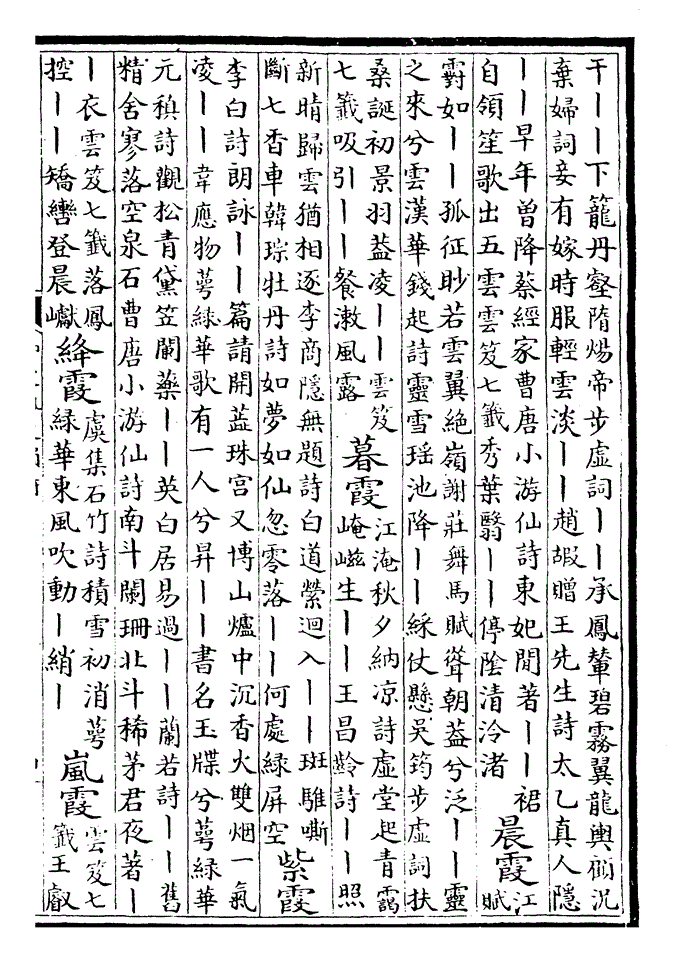 干丨丨下籠丹壑隋煬帝步虛詞丨丨承鳳輦碧霧翼龍輿顧況
棄婦詞妾有嫁時服輕雲淡丨丨趙嘏贈王先生詩太乙真人隱
丨丨早年曽降蔡經家曹唐小游仙詩東妃閒著丨丨裙
自領笙歌出五雲雲笈七籖秀葉翳丨丨停陰清泠渚
晨霞
江
賦
䨴如丨丨孤征眇若雲翼絶嶺謝莊舞馬賦聳朝葢兮泛丨丨靈
之來兮雲漢華錢起詩靈雪瑶池降丨丨綵仗懸吳筠步虛詞扶
桑誕初景羽葢凌丨丨雲笈
七籖吸引丨丨餐漱風露
暮霞
江淹秋夕納凉詩虛堂起青靄
崦嵫生丨丨王昌齡詩丨丨照
新晴歸雲猶相逐李商隱無題詩白道縈迴入丨丨斑騅嘶
斷七香車韓琮牡丹詩如夢如仙忽零落丨丨何處綠屏空
紫霞
李白詩朗詠丨丨篇請開蕋珠宫又博山爐中沉香火雙烟一氣
凌丨丨韋應物萼緑華歌有一人兮昇丨丨書名玉牒兮萼緑華
元稹詩觀松青黛笠闌藥丨丨英白居易過丨丨蘭若詩丨丨舊
精舍寥落空泉石曹唐小游仙詩南斗闌珊北斗稀茅君夜著丨
丨衣雲笈七籖落鳳
控丨丨矯轡登晨巘
絳霞
虞集石竹詩積雪初消萼
緑華東風吹動丨綃丨
嵐霞
雲笈七
籖王叡